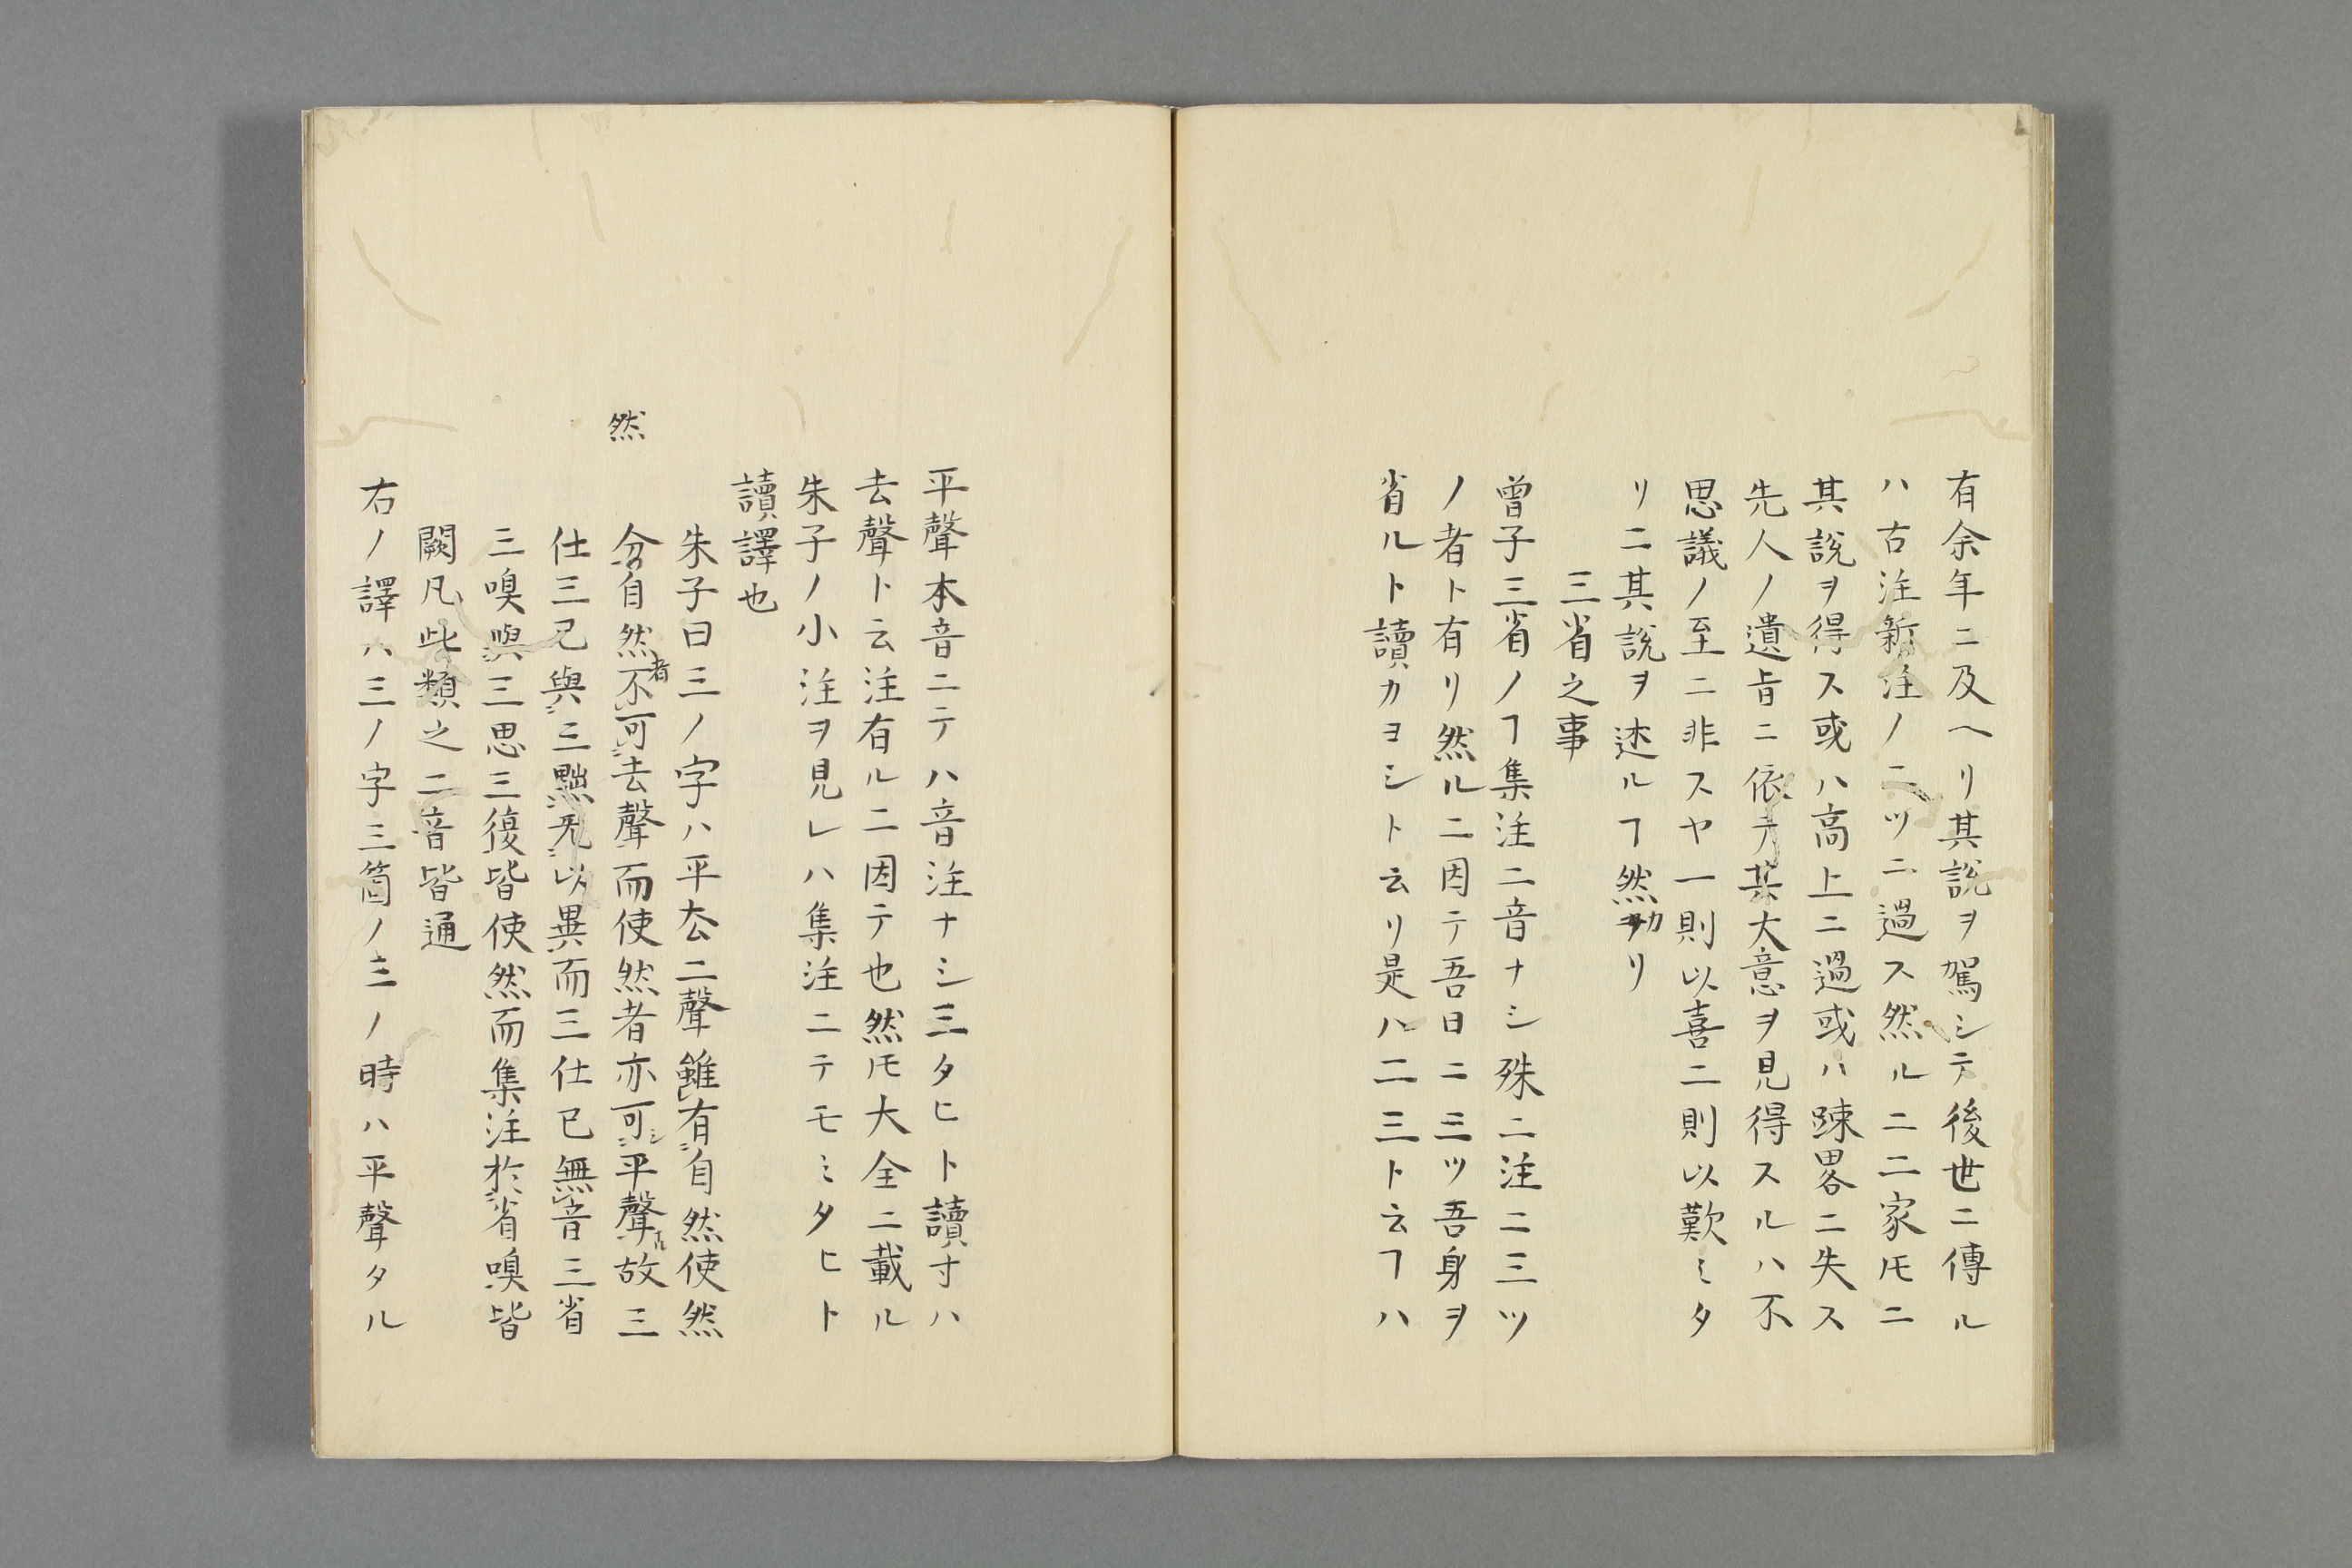 有余年ニ及ヘリ其說ヲ駕シテ後世ニ傳ル
ハ古注新注ノ二ツニ過ス然ルニ二家𪜈ニ
其說ヲ得ス或ハ高上ニ過或ハ踈畧ニ失ス
先人ノ遺旨ニ依テ某大意ヲ見得スルハ不
思議ノ至ニ非スヤ一則以喜二則以歎ミタ
リニ其說ヲ述ルヿ然リ
三省之事
曾子三省ノヿ集注ニ音ナシ殊ニ注ニ三ツ
ノ者ト有リ然ルニ因テ吾日ニ三ツ吾身ヲ
省ルト讀カヨシト云リ是ハ二三ト云フハ
平聲本音ニテハ音注ナシ三タヒト讀寸ハ
去聲ト云注有ルニ因テ也然𪜈大全ニ載ル
朱子ノ小注ヲ見レハ集注ニテモミタヒト
讀譯也
朱子曰三ノ字ハ平厺二聲雖有自然使然
然
分自然者不可去聲而使然者亦可シ平聲故三
仕三已與三黜无以異而三仕已無音三省
三嗅與三思三復皆使然而集注於省嗅皆
闕凡此類之二音皆通
右ノ譯ハ三ノ字三箇ノ三ノ時ハ平聲タル